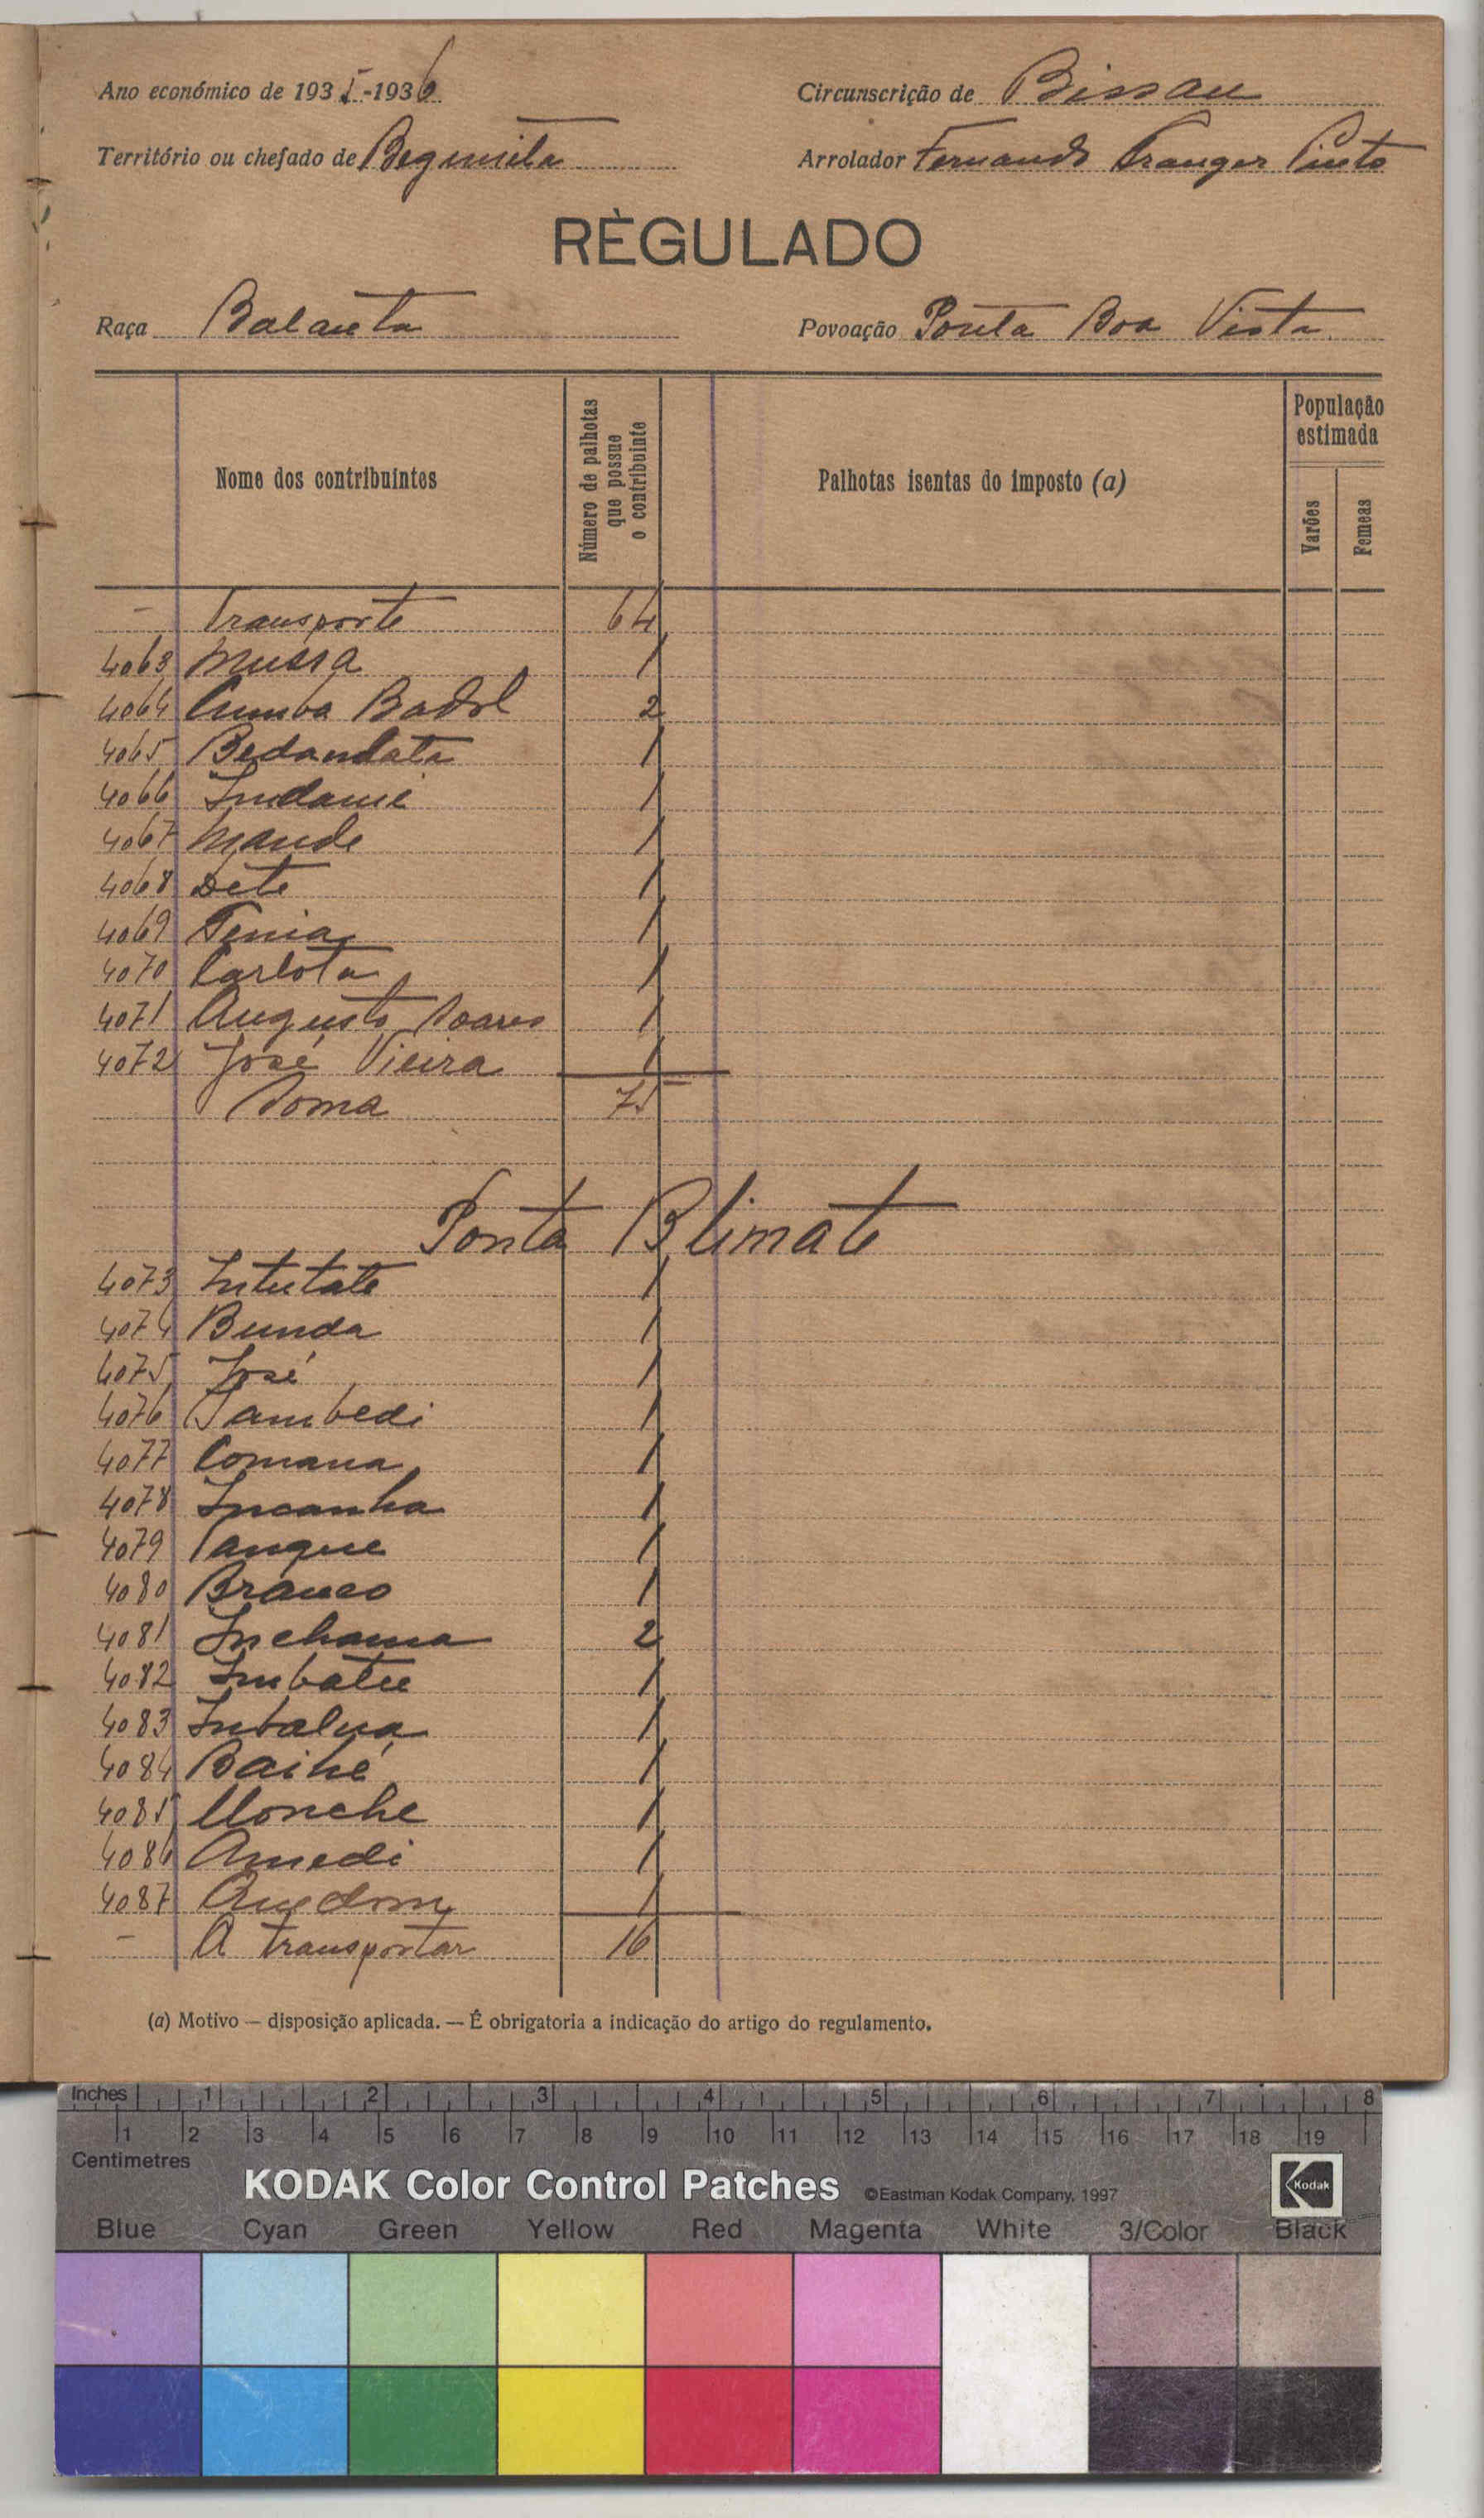 Ano económico de 1935-1936 Circunscrição de Bissau
Território ou chefado de Begimita Arrolador Fernando Pranger Pinto
RÈGULADO
Raça Balanta Povoação Ponta Boa Vista
Nome dos contribuintes
Número de palhotas
que possue
o contribuinte
Palhotas isentas do imposto (a)
População
estimada
Varões
Femeas
- Transporte 64
4063 Mussa 1
4064 Cumba Badol 2
4065 Bedandata 1
4066 Indami 1
4067 Mande 1
4068 Dete 1
4069 Tenia 1
4070 Carlota 1
4071 Augusto Soares 1
4072 José Vieira 1
Soma 75
Ponta Blimate
4073 Intutate 1
4074 Bunda 1
4075 José 1
4076 Tambedi 1
4077 Comana 1
4078 Incanha 1
4079 Tangue 1
4080 Branco 1
4081 Inchama 2
4082 Imbatu 1
4083 Intalna 1
4084 Baihé 1
4085 Monche 1
4086 Amedi 1
4087 1
- A transportar 16
(a) Motivo — disposição aplicada. — É obrigatoria a indicação do artigo do regulamento.
Inches 1 2 3 4 5 6 7 8
1 2 3 4 5 6 7 8 9 10 11 12 13 14 15 16 17 18 19
Centimetres
KODAK Color Control Patches ©Eastman Kodak Company, 1997 Kodak
Blue Cyan Green Yellow Red Magenta White 3/Color Black